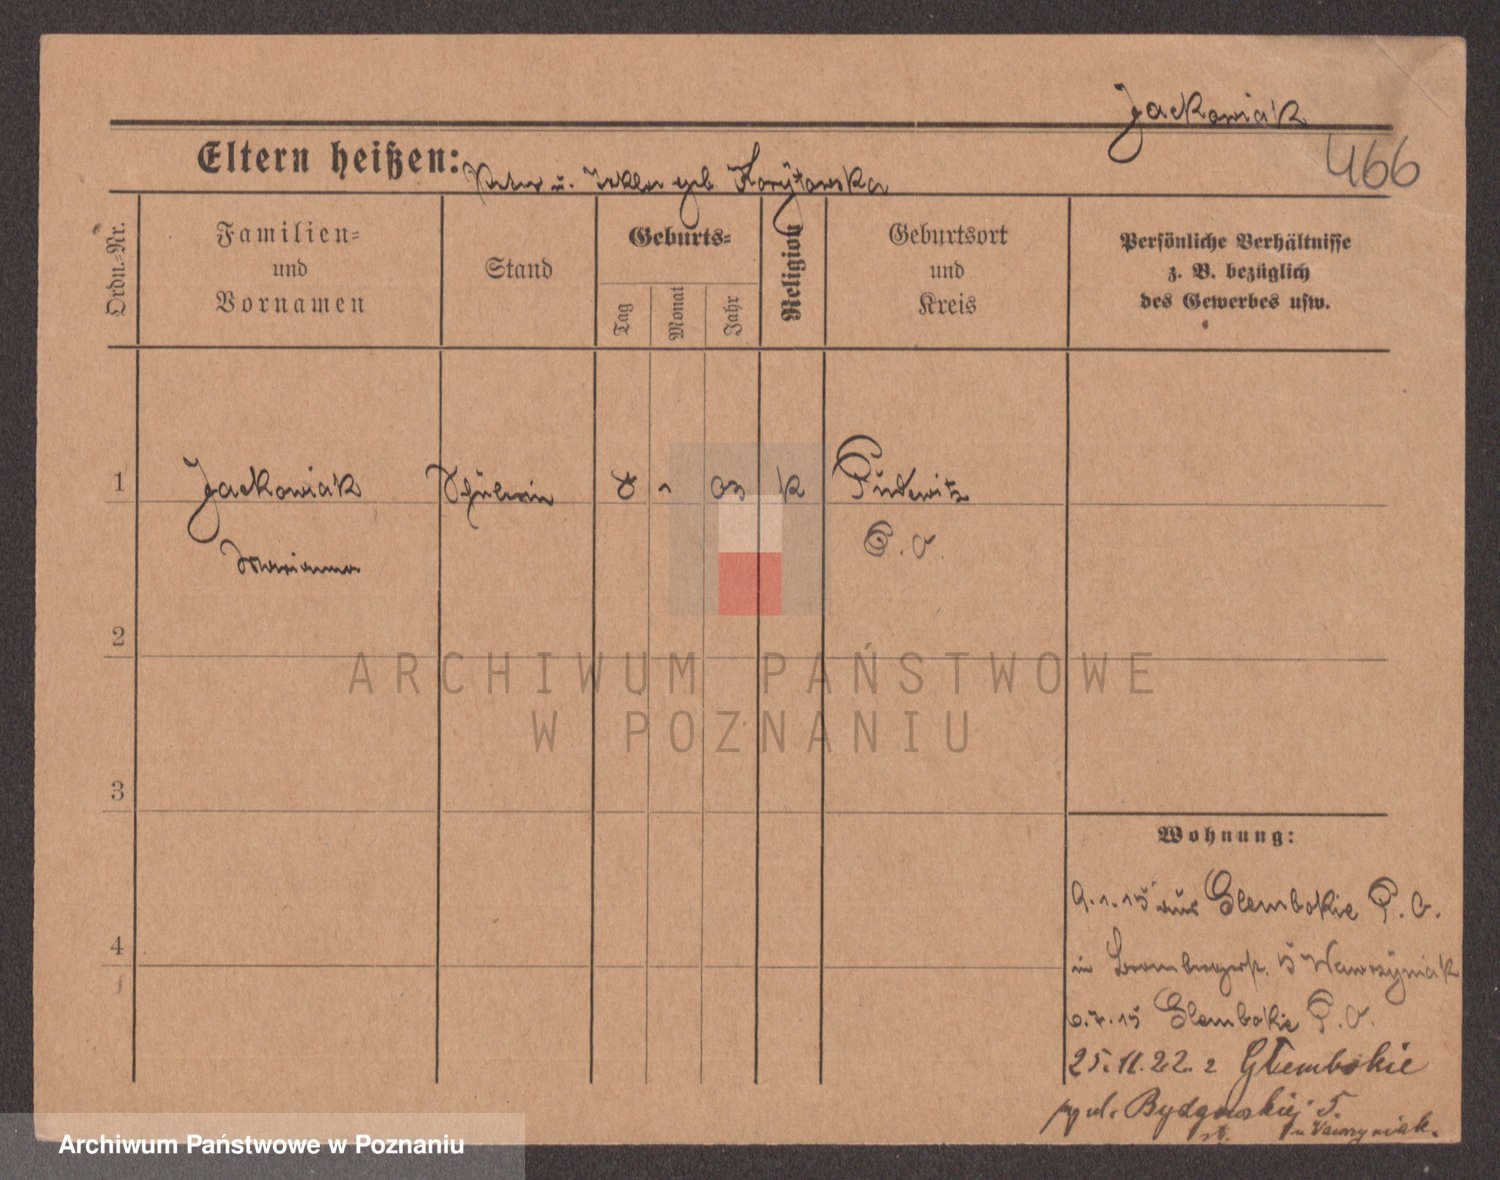 Jackowiak
466
Eltern heißen: Peter u. Thekla geb Korytowska
Ordn.-Nr.
Familien-
und
Vornamen
Stand
Geburts-
Tag
Monat
Jahr
Religion
Geburtsort
und
Kreis
Persönliche Verhältnisse
z. B. bezüglich
des Gewerbes usw.
1 Jackowiak Schülerin 8 1 03 k Pudewitz
Marianna P. O.
2
3
4
ARCHIWUM PAŃSTWOWE
W POZNANIU
Wohnung:
9.1.15 aus Glembokie P. O.
in Brombergerstr. 5 Wawrzyniak
6.4.15 Glembokie P. O.
25.11.22. z Głembokie
ul. Bydgoskiej 5.
Wawrzyniak.
Archiwum Państwowe w Poznaniu